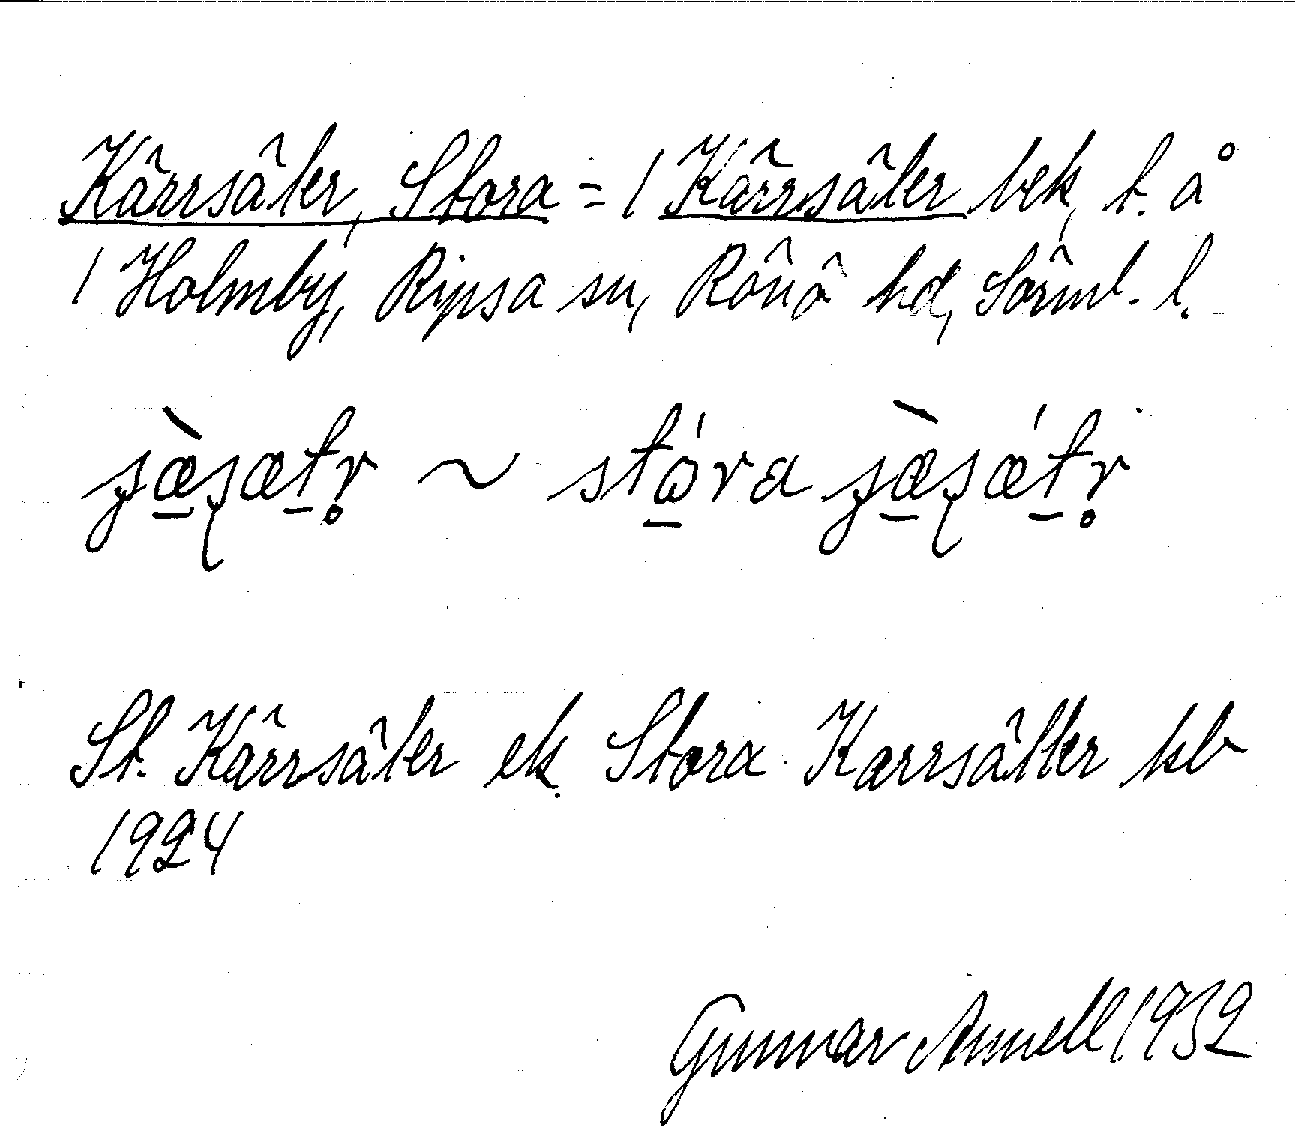 Kärrsäter, Stora = 1 Kärrsäter bek, t. å
1 Holmby, Ripsa sn, Rönö hd, Sörml. l.
St. Kärrsäter ek. Stora Karrsätter kb
1924
Gunnar Annell 1932